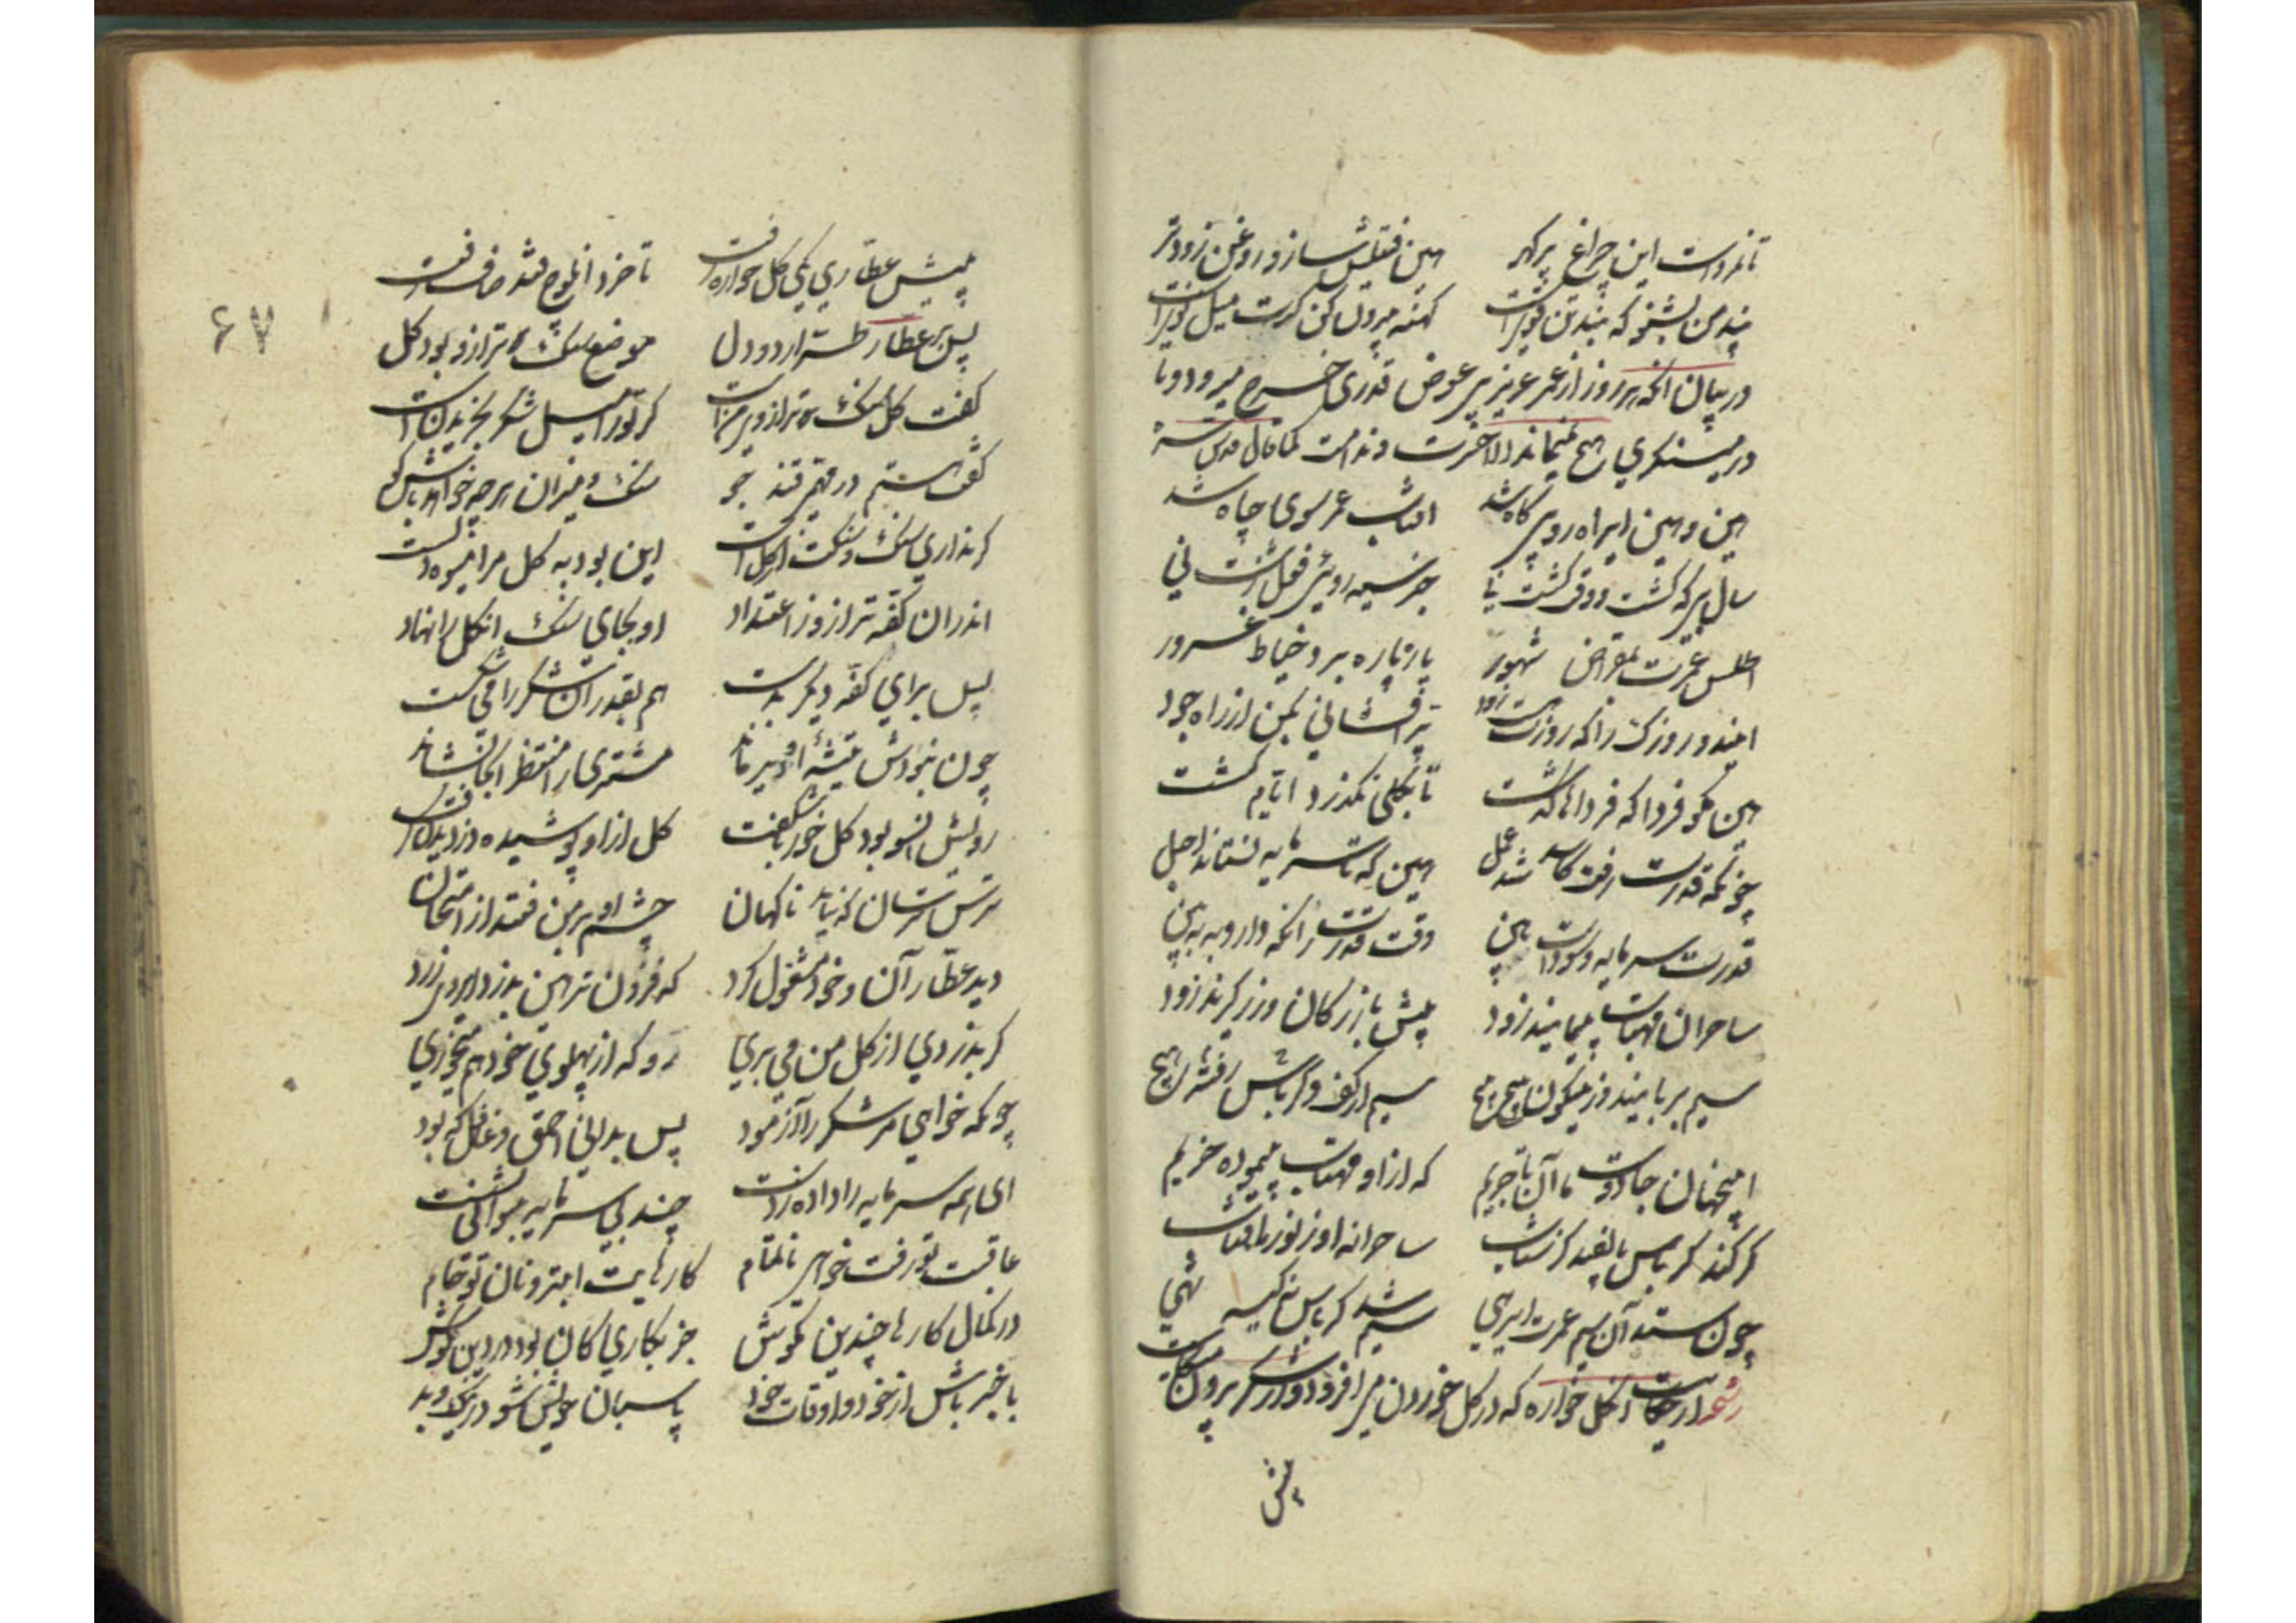 تا نمردست این چراغ پر گهر هین فتیلش ساز و روغن زودتر
پند من بشنو که تن بند قویست کهنه بیرون کن گرت میل نویست
در بیان آنکه هر روز از عمر عزیز بی عوض قدری خرج میرود و تا
در مینگری هیچ نمیماند الا حسرت و ندامت کما قال قدس سره
هین و هین ای راه رو بیگاه شد آفتاب عمر سوی چاه شد
سال بیگه گشت وقت کشت نی جز سیه رویی و فعل زشت نی
اطلس عمرت بمقراض شهور پاره پاره برد خیاط غرور
این دو روزک را که زورت هست زود پر افشانی بکن از راه جود
هین مگو فردا که فرداها گذشت تا بکلی نگذرد ایام کشت
چونکه قدرت رفت کاسد شد عمل هین که تا سرمایه نستاند اجل
قدرت سرمایه سودست هین وقت قدرت را نگه دار و ببین
ساحران مهتاب پیمایند زود پیش بازرگان و زر گیرند سود
سیم بربایند زین گون پیچ پیچ سیم از کف رفته و کرباس هیچ
این جهان جادوست ما آن تاجریم که ازو مهتاب پیموده خریم
گز کند کرباس پانصد گز شتاب ساحرانه او ز نور ماهتاب
چون ستد آن سیم عمرت ای رهی سیم شد کرباس نی کیسه تهی
رشحه از حکایت آن گل خواره که در گل خوردن می افزود و از شکر بیرون میکاست
پیش
۶۷
پیش عطاری یکی گل خواره رفت تا خرد ابلوج قند خاص زفت
پس بر عطار طرار دو دل موضع سنگ ترازو بود گل
گفت گل سنگ ترازوی منست گر ترا میل شکر بخریدنست
گفت هستم در مهمی قند جو سنگ میزان هر چه خواهی باش گو
گر نداری سنگ و سنگت از گل است این بود به گل مرا میوه دلست
اندران کفه ترازو ز اعتداد او بجای سنگ آن گل را نهاد
پس برای کفه دیگر بدست هم بقدر آن شکر را می شکست
چون نبودش تیشه او دیر ماند مشتری را منتظر آنجا نشاند
رویش آنسو بود گل خور ناشکفت گل ازو پوشیده دزدیدن گرفت
ترس ترسان که نیاید ناگهان چشم او بر من فتد از امتحان
دید عطار آن و خود مشغول کرد که فزون تر دزد هین ای روی زرد
گر بدزدی از گل من می بری رو که از پهلوی خود هم میخوری
چونکه خواهی مر شکر را آزمود پس بدانی احمق و غافل که بود
ای همه سرمایه را داده ز دست چند بی سرمایه میخواهی نشست
عاقبت تو رفت خواهی ناتمام کارهایت ابتر و نان تو خام
در کمال کارها چندین مکوش جز بکاری کان بود در دین مکوش
با خبر باش از خود و اوقات خود پاسبان خویش شو در نیک و بد